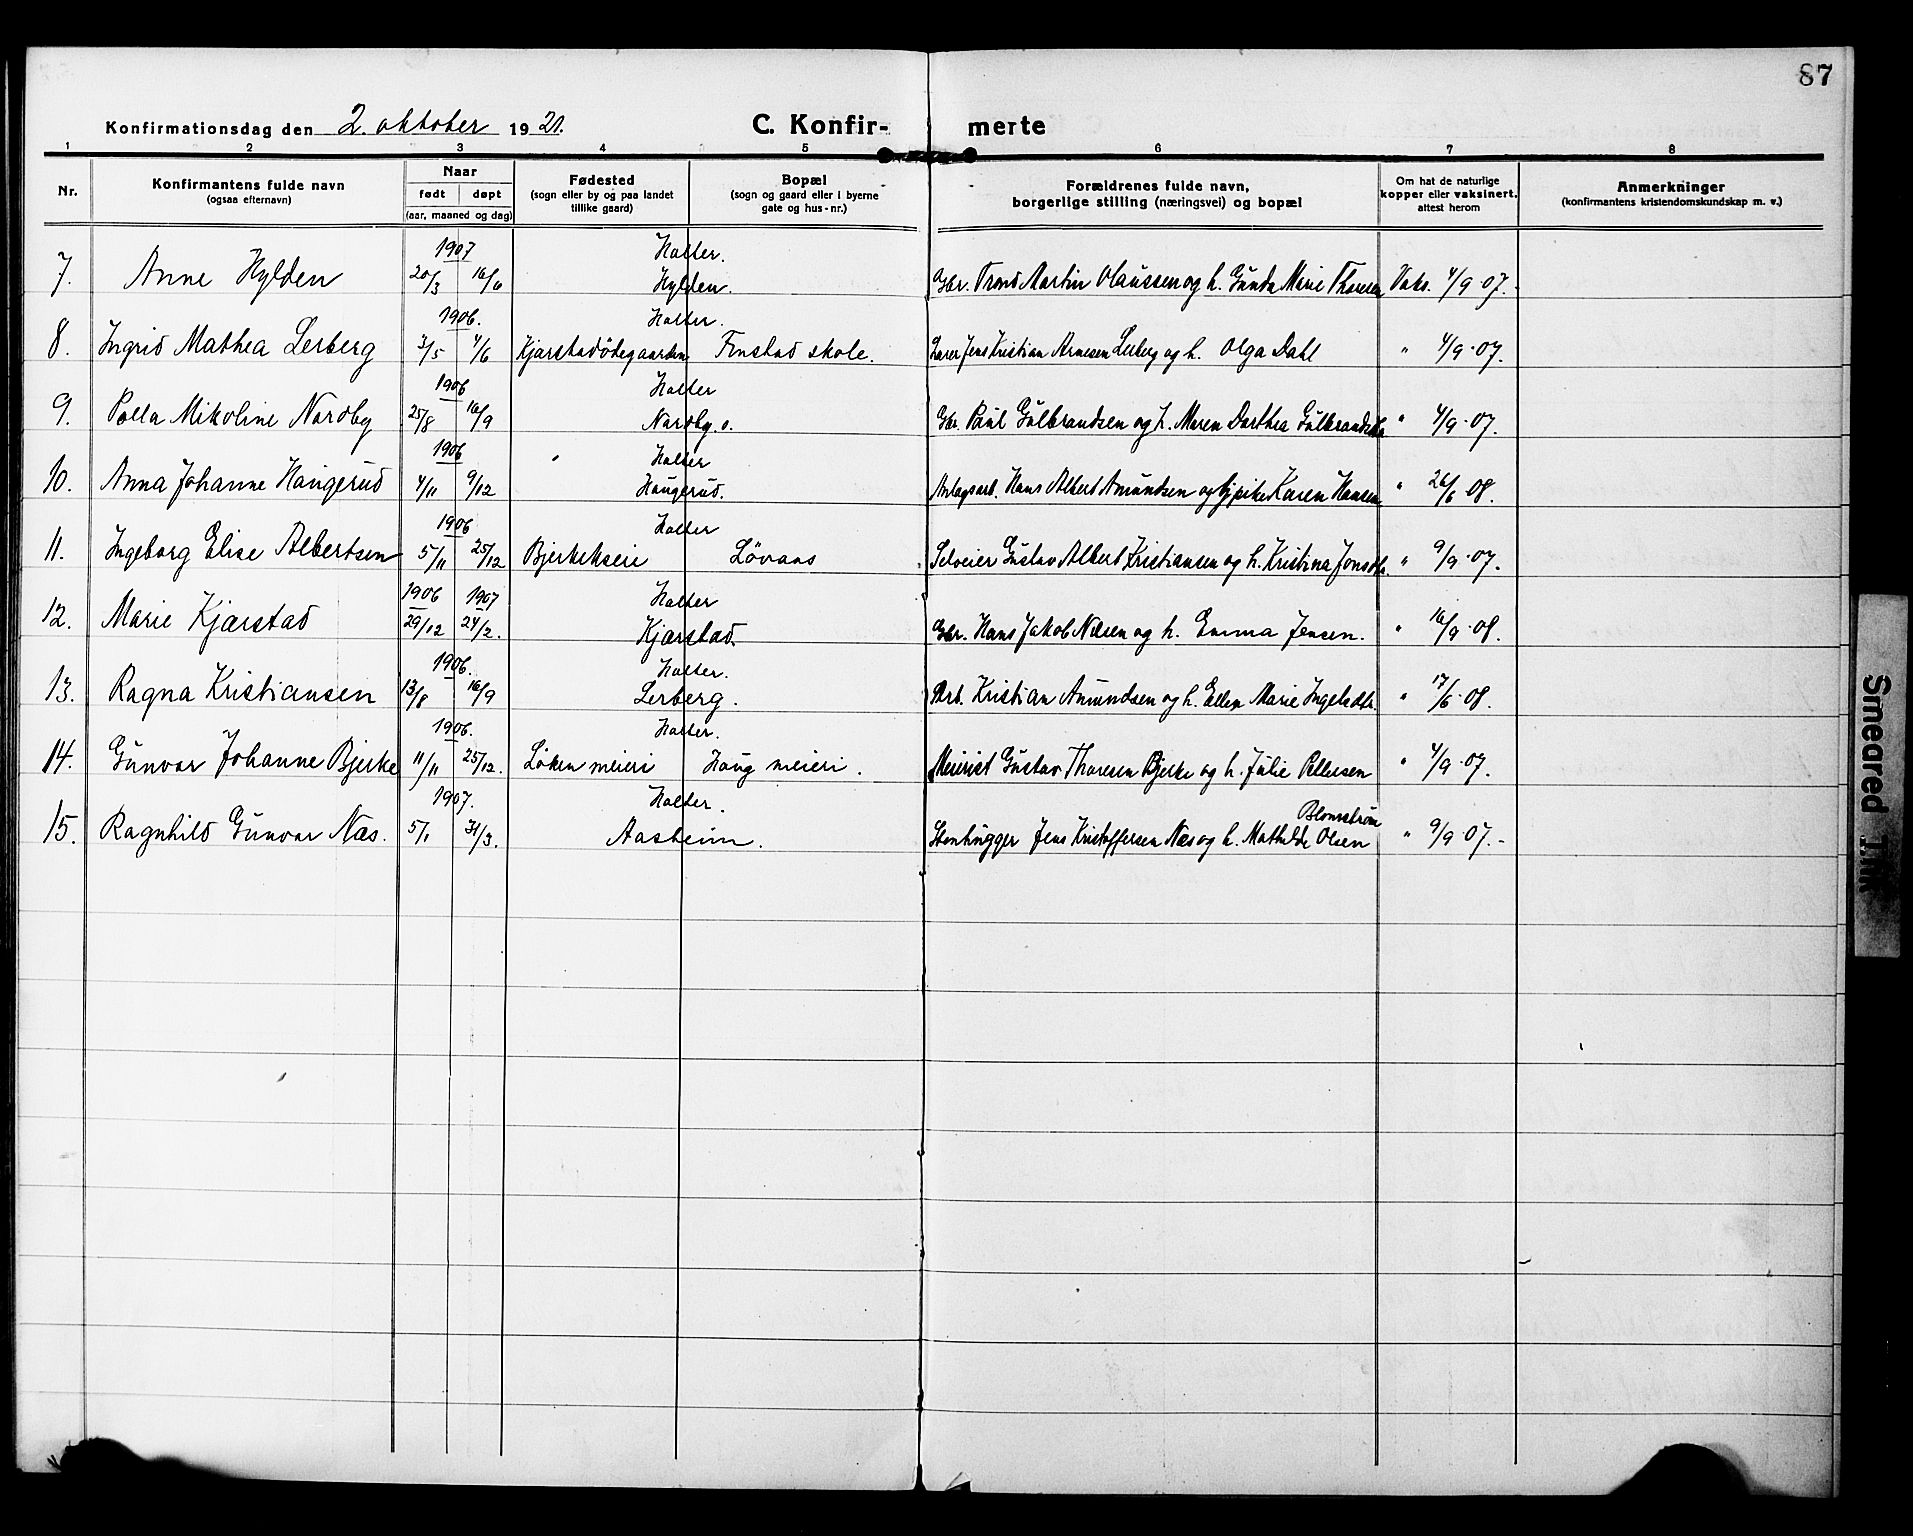 87
Konfirmationsdag den 2. oktober 1921.
C. Konfir- merte
1 2 3 4 5 6 7 8
Nr.
Konfirmantens fulde navn
(ogsaa efternavn)
Naar
født døpt
(aar, maaned og dag)
Fødested
(sogn eller by og paa landet
tillike gaard)
Bopæl
(sogn og gaard eller i byerne
gate og hus-nr.)
Forældrenes fulde navn,
borgerlige stilling (næringsvei) og bopæl
Om hat de naturlige
kopper eller vaksinert.
attest herom
Anmerkninger
(konfirmantens kristendomskundskap m. v.)
1907 Holter.
7. Anne Hylden 20/3 16/6 Hylden. Gbr. Trond Martin Olaussen og h. Gunda Marie Thoresen Vaks. 4/9 07.
1906. Holter.
8. Ingrid Mathea Lerberg 3/5 4/6 Kjærstadødegaarden Finstad skole. Lærer Jens Kristian Arnesen Lerberg og h. Olga Dahl " 4/9 07.
1906 Holter
9. Palla Mikoline Nordby 25/8 16/9 Nordby ø. Gbr. Paul Gulbrandsen og h. Maren Dorthea Gulbrandsdtr " 4/9 07.
1906 Holter
10. Anna Johanne Haugerud 4/11 9/12 " Haugerud. Anlægsarb. Hans Albert Amundsen og pike Karen Hansen " 26/6 08.
1906 Holter
11. Ingeborg Elise Albertsen 5/11 25/12 Bjerkekseie Løvaas Selveier Gustav Albert Kristiansen og h. Kristina Jonsdtr. " 9/9 07.
1906 1907 Holter
12. Marie Kjærstad 29/12 24/2. Kjærstad. Gbr. Hans Jakob Nilsen og h. Emma Jensen. " 16/9 08.
1906. Holter.
13. Ragna Kristiansen 13/8 16/9 Lerberg. Arb. Kristian Amundsen og h. Ellen Marie Ingelsdtr. " 17/6 08.
1906. Holter.
14. Gunvor Johanne Bjerke 11/11 25/12. Løken meieri Haug meieri. Meierist Gustav Thoresen Bjerke og h. Julie Pettersen " 4/9 07.
1907. Holter. Blomstrøm
15. Ragnhild Gunvor Næs. 5/1 31/3. Aasheim. Stenhugger Jens Kristoffersen Næs og h. Mathilde Olsen " 9/9 07.-
Smeared Ink